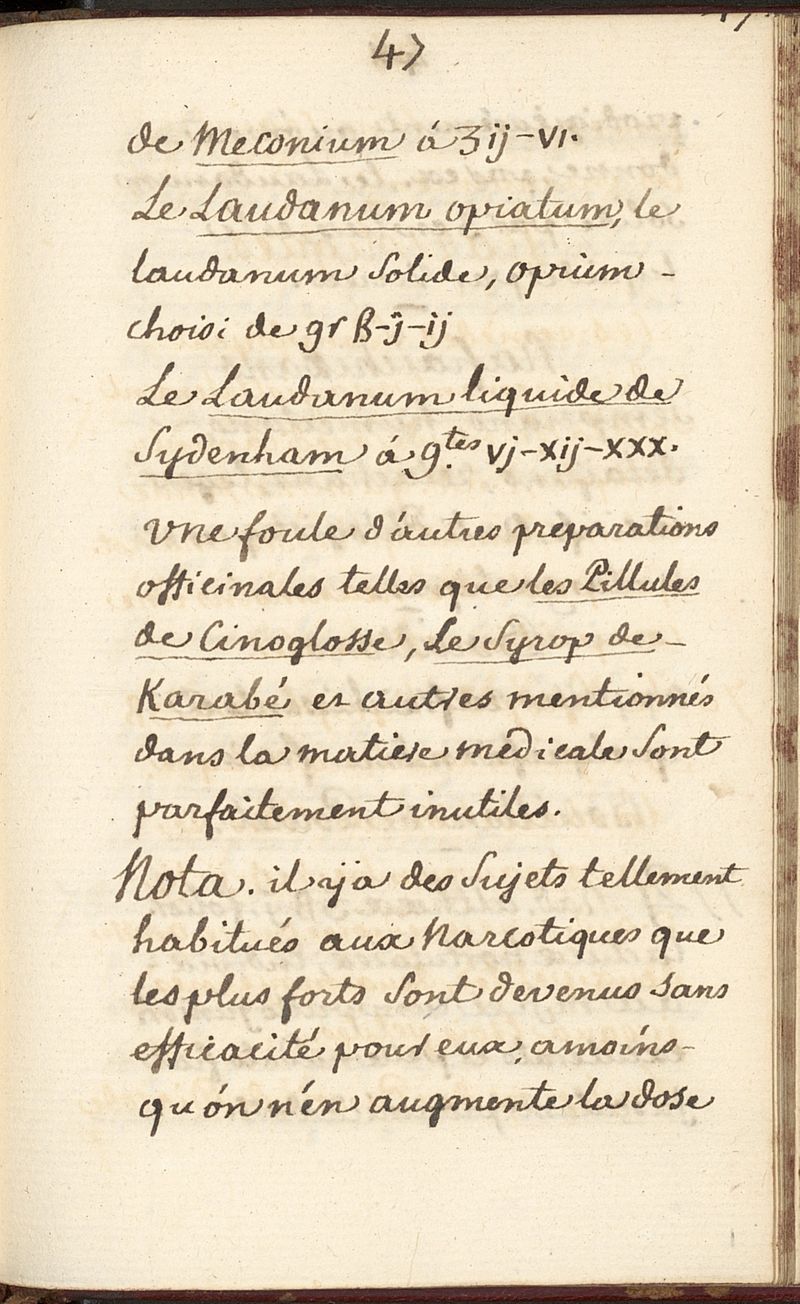 47
de Meconium á ʒij-vi.
Le Laudanum opiatum, le
laudanum solide, opium -
choisi de gr ß-j-ij
Le Laudanum liquide de
Sydenham á g.tes vj-xij-xxx.
une foule d'autres preparations
officinales telles que les Pillules
de Cinoglosse, Le Syrop de -
Karabé et autres mentionnés
dans la matiere médicale sont
parfaitement inutiles.
Nota. il ÿa des Sujets tellement
habitués aux Narcotiques que
les plus forts sont devenus sans
efficacité pour eux, amoins -
qu'on n'en augmente la dose